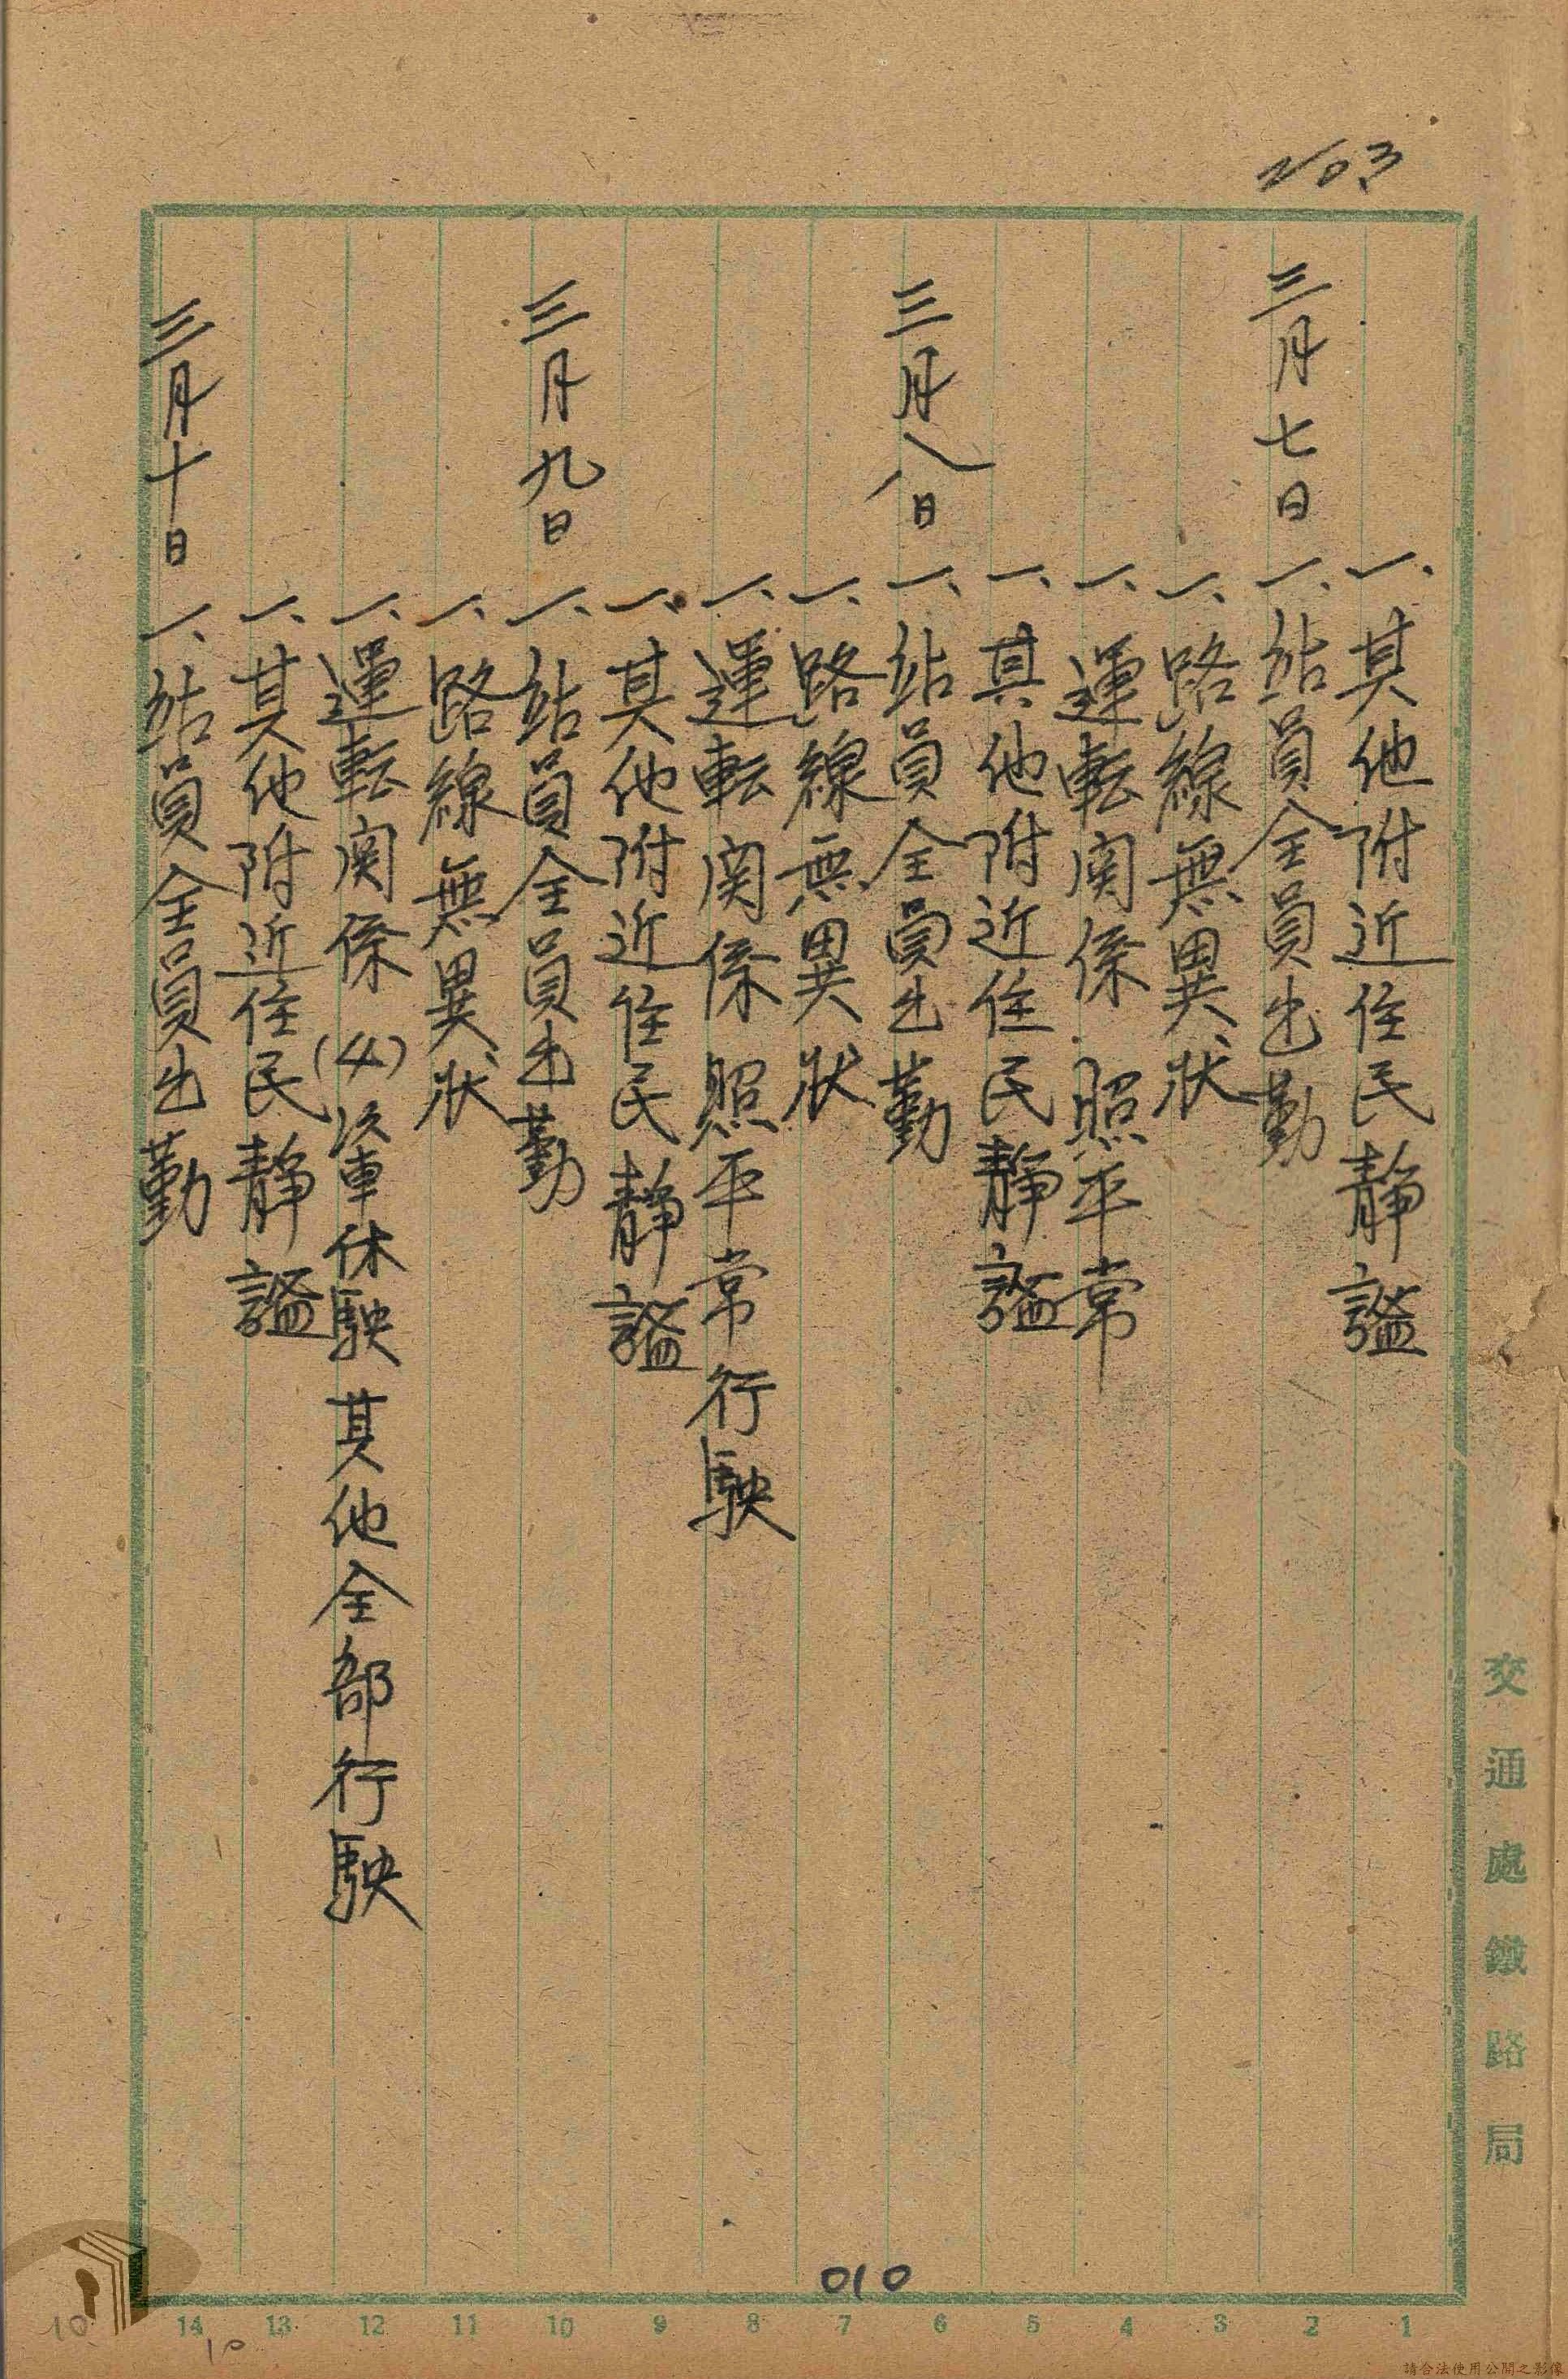 203
一、其他附近住民静謐
三月七日 一、站員全員出勤
一、路線無異状
一、運転関係 照平常
一、其他附近住民静謐
三月八日 一、站員全員出勤
一、路線無異状
一、運転関係 照平常行駛
一、其他附近住民静謐
三月九日 一、站員全員出勤
一、路線無異状
一、運転関係 (4)次車休駛 其他全部行駛
一、其他附近住民静謐
三月十日 一、站員全員出勤
交通處鐵路局
010
14 13 12 11 10 9 8 7 6 5 4 3 2 1
10
10
請合法使用公開之影像